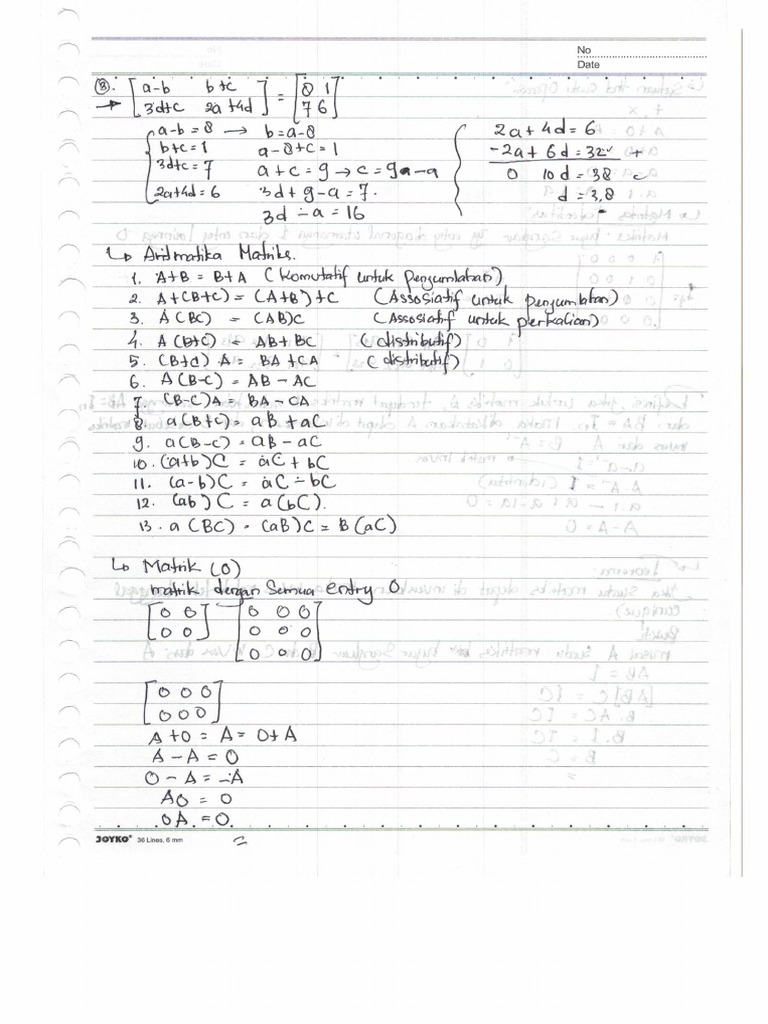 No
Date
8. [a-b b+c
3d+c 2a+4d] = [8 1
7 6]
a-b = 8 → b = a-8
b+c = 1 a-8+c = 1
3d+c = 7 a+c = 9 → c = 9a-a
2a+4d = 6 3d+9-a = 7.
3d - a = 16
2a+4d = 6
-2a+6d = 32 +
0 10d = 38
d = 3,8
↳ Aritmatika Matriks.
1. A+B = B+A (komutatif untuk penjumlahan)
2. A+(B+C) = (A+B)+C (Assosiatif untuk penjumlahan)
3. A(BC) = (AB)C (Assosiatif untuk perkalian)
4. A(B+C) = AB+BC (distributif)
5. (B+C)A = BA+CA (distributif)
6. A(B-C) = AB - AC
7 (B-C)A = BA - CA
8. a(B+C) = aB + aC
9. a(B-C) = aB - aC
10. (a+b)C = aC + bC
11. (a-b)C = aC - bC
12. (ab)C = a(bC).
13. a(BC) = (aB)C = B(aC)
↳ Matrik (0)
matrik dengan semua entry 0
[0 0
0 0] [0 0 0
0 0 0
0 0 0]
[0 0 0
0 0 0]
A+0 = A = 0+A
A - A = 0
0 - A = -A
A0 = 0
0A = 0.
JOYKO® 36 Lines, 6 mm